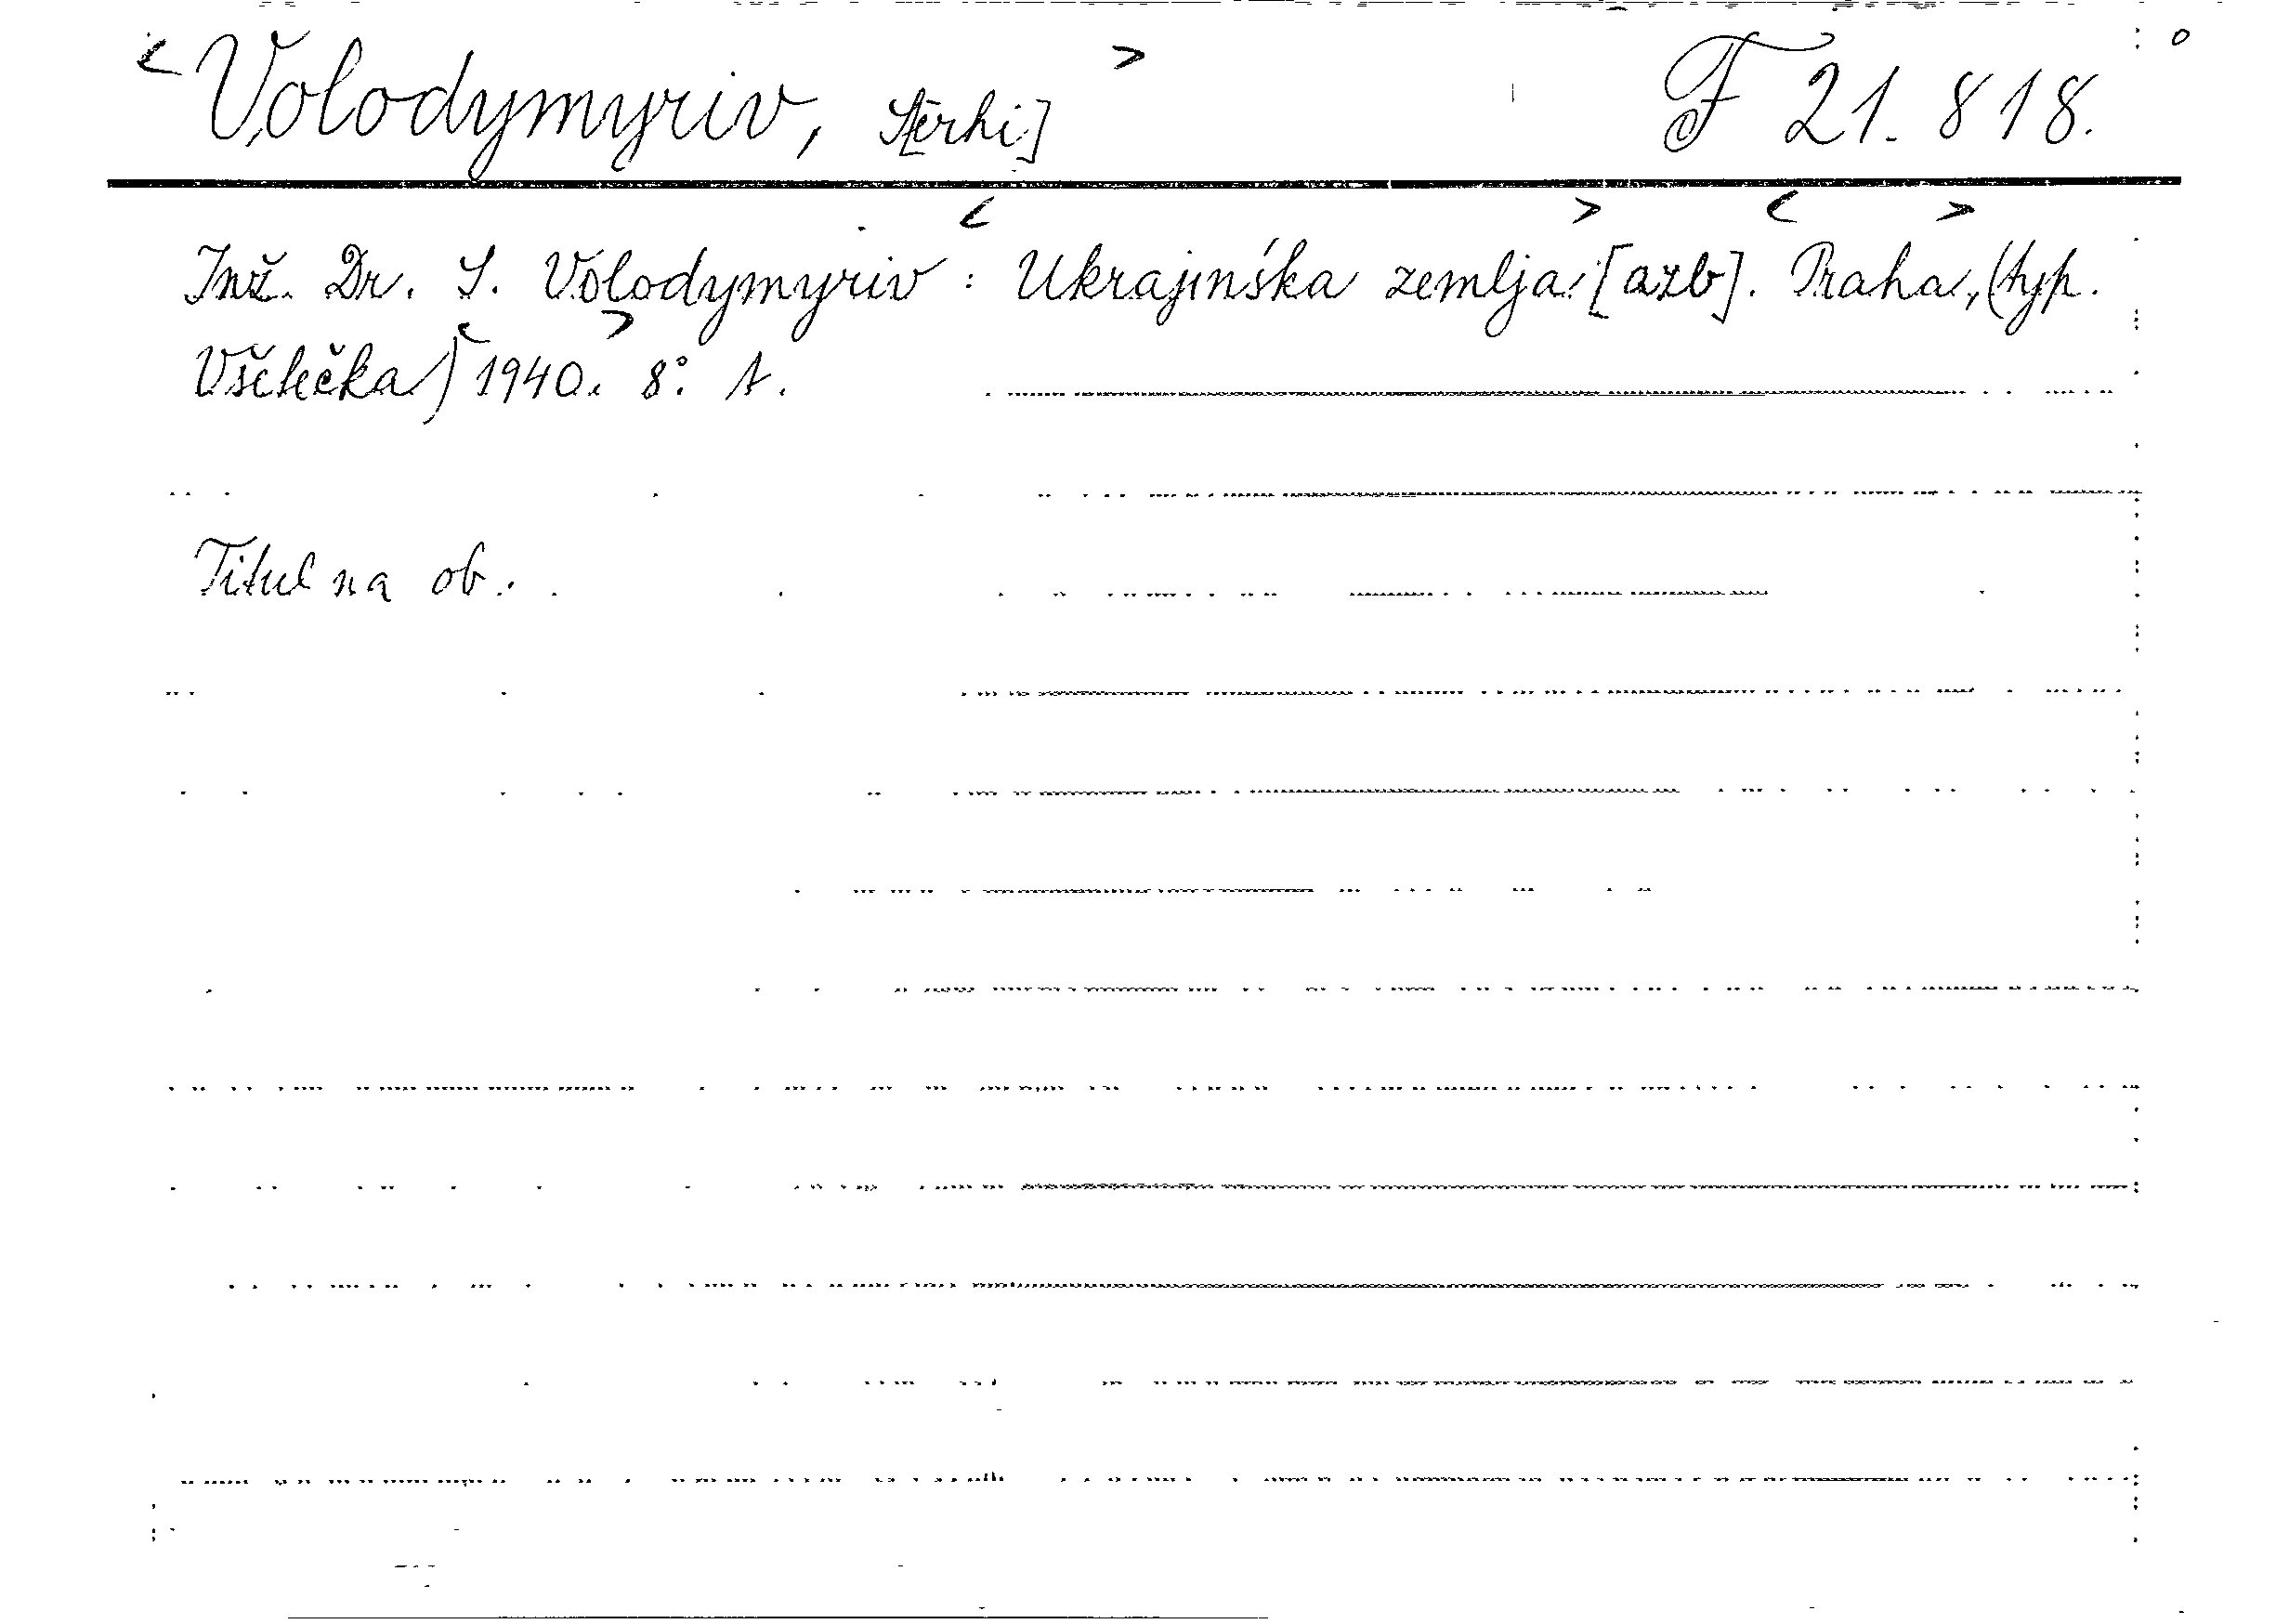 <Volodymyriv, S[erhij]> F 21.818.
Inž. Dr. S. Volodymyriv: <Ukrajinśka zemlja> [azb]. <Praha>, (typ.
Všetečka) <1940>. 8°.
Titul na ob.